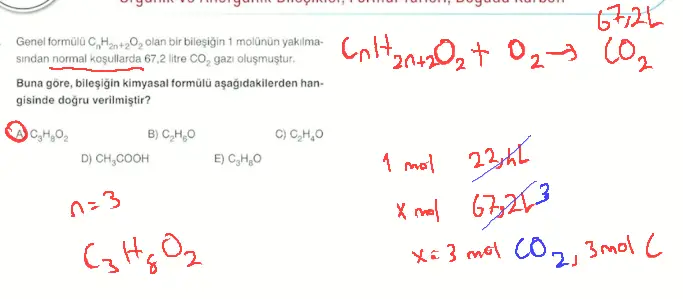 Organik ve Anorganik Bileşikler, Formül Türleri, Doğada Karbon
Genel formülü CₙH₂ₙ₊₂O₂ olan bir bileşiğin 1 molünün yakılma-
sından normal koşullarda 67,2 litre CO₂ gazı oluşmuştur.
Buna göre, bileşiğin kimyasal formülü aşağıdakilerden han-
gisinde doğru verilmiştir?
A) C₃H₈O₂ B) C₂H₆O C) C₂H₄O
D) CH₃COOH E) C₃H₈O
67,2L
CnH2n+2O2 + O2 → CO2
1 mol 22,4L
x mol 67,2L 3
x = 3 mol CO2, 3 mol C
n = 3
C3H8O2